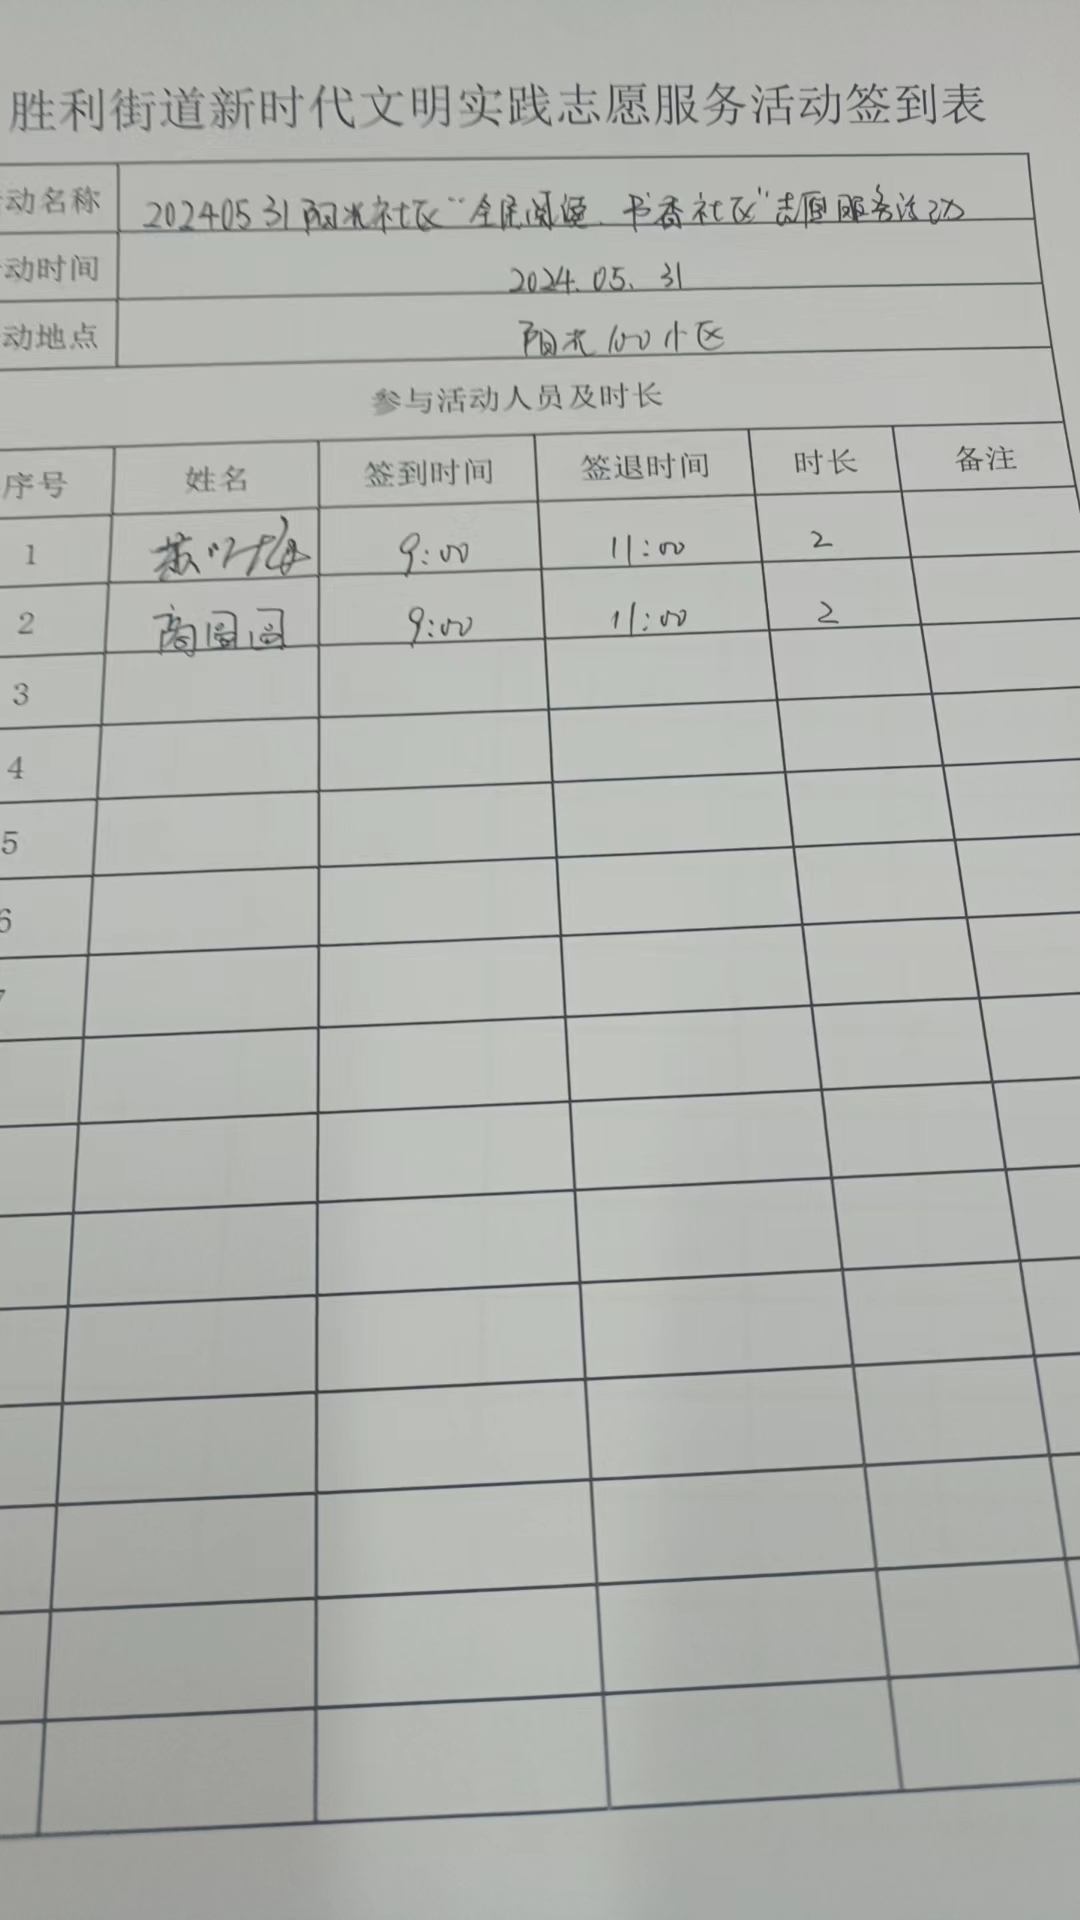 胜利街道新时代文明实践志愿服务活动签到表
动名称 20240531阳光社区“全民阅读、书香社区”志愿服务活动
动时间 2024.05.31
动地点 阳光100小区
参与活动人员及时长
序号 姓名 签到时间 签退时间 时长 备注
1 9:00 11:00 2
2 商圆圆 9:00 11:00 2
3
4
5
6
7